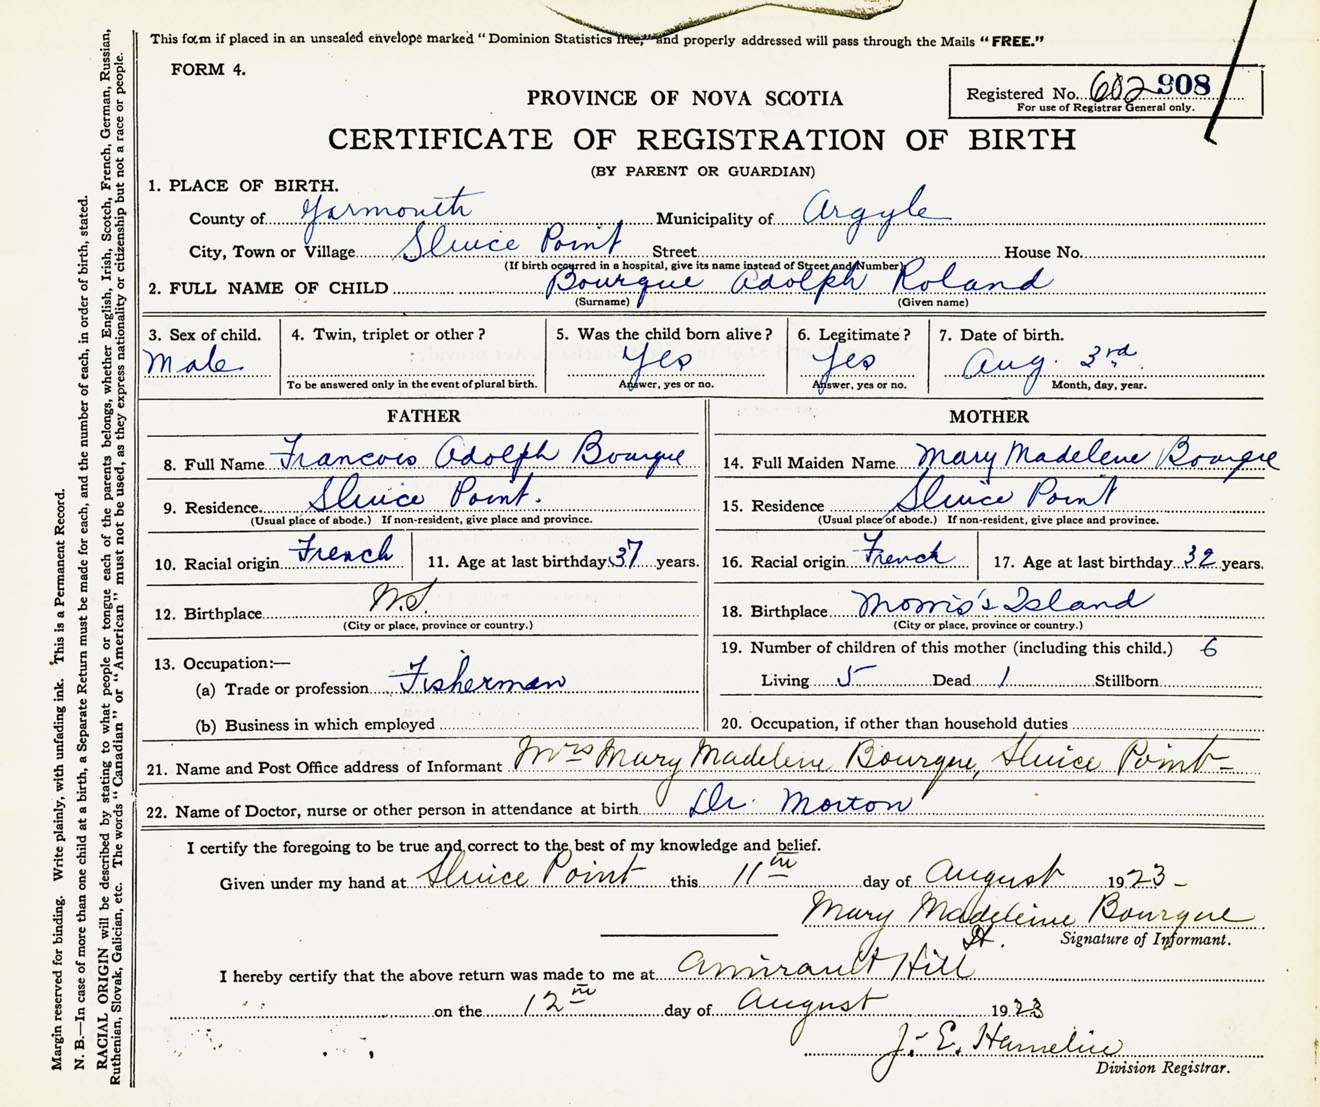 This form if placed in an unsealed envelope marked "Dominion Statistics free," and properly addressed will pass through the Mails "FREE."
FORM 4.
Registered No. 602 908
For use of Registrar General only.
PROVINCE OF NOVA SCOTIA
CERTIFICATE OF REGISTRATION OF BIRTH
(BY PARENT OR GUARDIAN)
1. PLACE OF BIRTH.
County of Yarmouth Municipality of Argyle
City, Town or Village Sluice Point Street House No.
(If birth occurred in a hospital, give its name instead of Street and Number)
2. FULL NAME OF CHILD Bourque Adolph Roland
(Surname) (Given name)
3. Sex of child. 4. Twin, triplet or other? 5. Was the child born alive? 6. Legitimate? 7. Date of birth.
Male Yes Yes Aug. 3rd
To be answered only in the event of plural birth. Answer, yes or no. Answer, yes or no. Month, day, year.
FATHER MOTHER
8. Full Name Francois Adolph Bourque 14. Full Maiden Name Mary Madelene Bourque
9. Residence. Sluice Point. 15. Residence Sluice Point
(Usual place of abode.) If non-resident, give place and province. (Usual place of abode.) If non-resident, give place and province.
10. Racial origin French 11. Age at last birthday 37 years. 16. Racial origin French 17. Age at last birthday 32 years.
12. Birthplace N.S. 18. Birthplace Morris's Island
(City or place, province or country.) (City or place, province or country.)
13. Occupation:— 19. Number of children of this mother (including this child.) 6
(a) Trade or profession Fisherman Living 5 Dead 1 Stillborn
(b) Business in which employed 20. Occupation, if other than household duties
21. Name and Post Office address of Informant Mrs Mary Madeleine Bourque, Sluice Point
22. Name of Doctor, nurse or other person in attendance at birth Dr. Morton
I certify the foregoing to be true and correct to the best of my knowledge and belief.
Given under my hand at Sluice Point this 11th day of August 1923
Mary Madeleine Bourque
Signature of Informant.
I hereby certify that the above return was made to me at Amirault Hill
on the 12th day of August 1923
J. E. Hamelin
Division Registrar.
Margin reserved for binding. Write plainly, with unfading ink. This is a Permanent Record.
N. B.—In case of more than one child at a birth, a Separate Return must be made for each, and the number of each, in order of birth, stated.
RACIAL ORIGIN will be described by stating to what people or tongue each of the parents belongs, whether English, Irish, Scotch, French, German, Russian,
Ruthenian, Slovak, Galician, etc. The words "Canadian" or "American" must not be used, as they express nationality or citizenship but not a race or people.